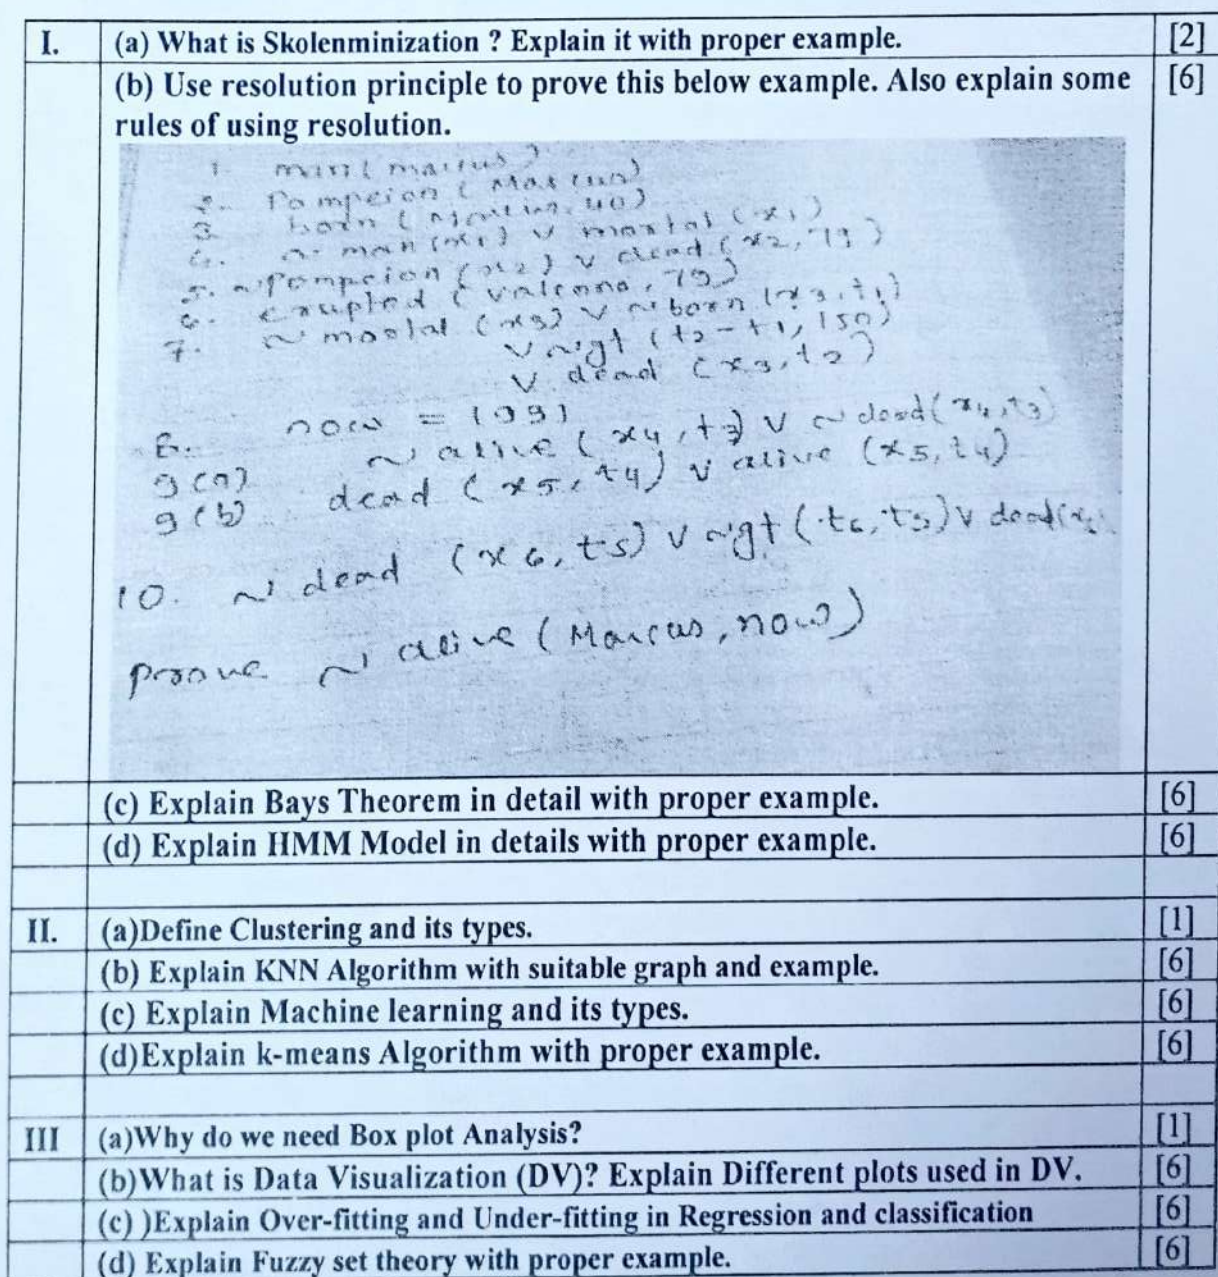 I. (a) What is Skolenminization ? Explain it with proper example. [2]
(b) Use resolution principle to prove this below example. Also explain some [6]
rules of using resolution.
1. man( marcus)
2. Pompeion ( Marcus)
3. born ( Marcus, 40)
4. ~ man (x1) v mortal (x1)
5. ~ Pompeion (x2) v dead (x2, 79)
6. erupted ( valcono, 79)
7. ~ mortal (x3) v ~ born (x3, t1)
v ~gt (t2 - t1, 150)
v dead (x3, t2)
8. now = 1991
9(a) ~ alive ( x4, t3) v ~ dead( x4, t3)
9(b) dead ( x5, t4) v alive (x5, t4)
10. ~ dead (x6, t5) v ~gt ( t6, t5) v dead(x6
prove ~ alive ( Marcus, now)
(c) Explain Bays Theorem in detail with proper example. [6]
(d) Explain HMM Model in details with proper example. [6]
II. (a)Define Clustering and its types. [1]
(b) Explain KNN Algorithm with suitable graph and example. [6]
(c) Explain Machine learning and its types. [6]
(d)Explain k-means Algorithm with proper example. [6]
III (a)Why do we need Box plot Analysis? [1]
(b)What is Data Visualization (DV)? Explain Different plots used in DV. [6]
(c) )Explain Over-fitting and Under-fitting in Regression and classification [6]
(d) Explain Fuzzy set theory with proper example. [6]